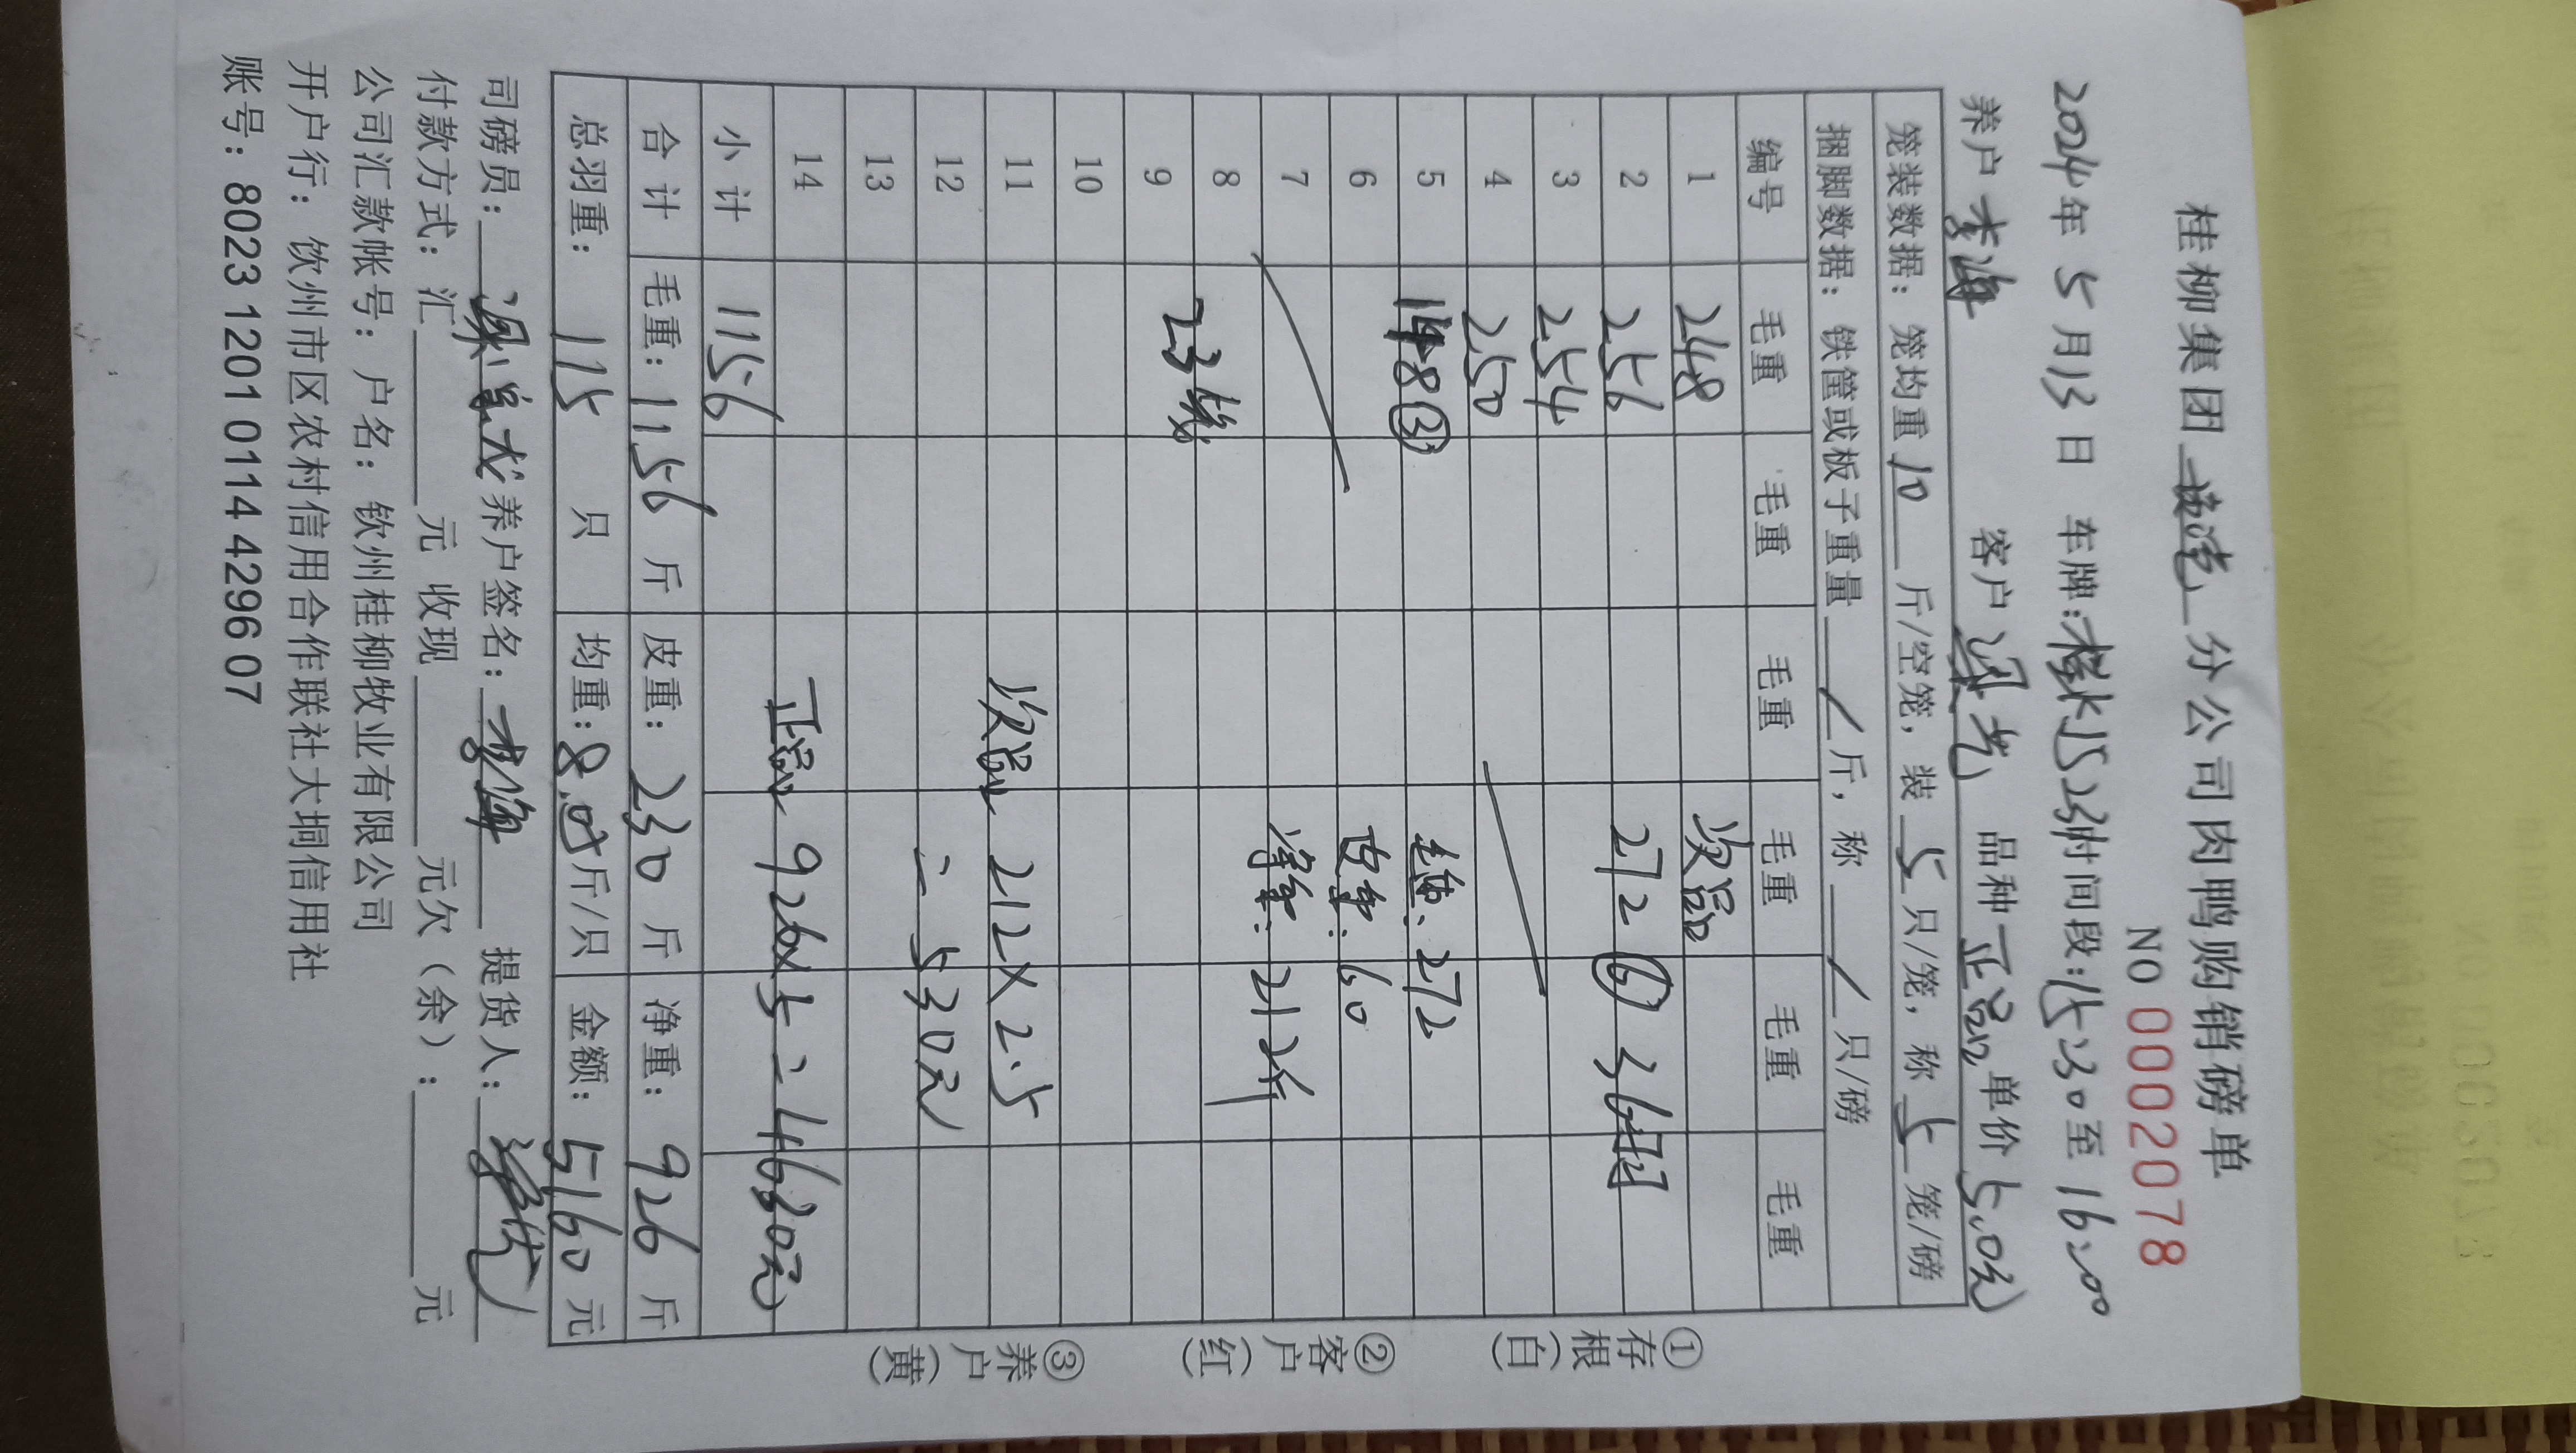 桂柳集团 分公司肉鸭购销磅单
NO 0002078
2024年 5 月 13 日 车牌: 时间段: 15:30 至 16:00
养户 李海 客户 梁 品种 正品 单价 5.0元
笼装数据: 笼均重 10 斤/空笼, 装 5 只/笼, 称 5 笼/磅
捆脚数据: 铁筐或板子重量 / 斤, 称 / 只/磅
编号 毛重 毛重 毛重 毛重 毛重 毛重
1 248 次品
2 256 272 ⑥ 36羽
3 254
4 250
5 148 ③ 毛重: 272
6 皮重: 60
7 净重: 212斤
8 23笼
9
10
11 次品 212×2.5
12 =530元
13
14 正品 926×5=4630元
小计 1156
合计 毛重: 1156 斤 皮重: 230 斤 净重: 926 斤
总羽重: 115 只 均重: 8.05 斤/只 金额: 5160 元
司磅员: 养户签名: 李海 提货人:
付款方式: 汇 元 收现 元欠(余): 元
公司汇款帐号: 户名: 钦州桂柳牧业有限公司
开户行: 钦州市区农村信用合作联社大垌信用社
账号: 8023 1201 0114 4296 07
①存根(白) ②客户(红) ③养户(黄)